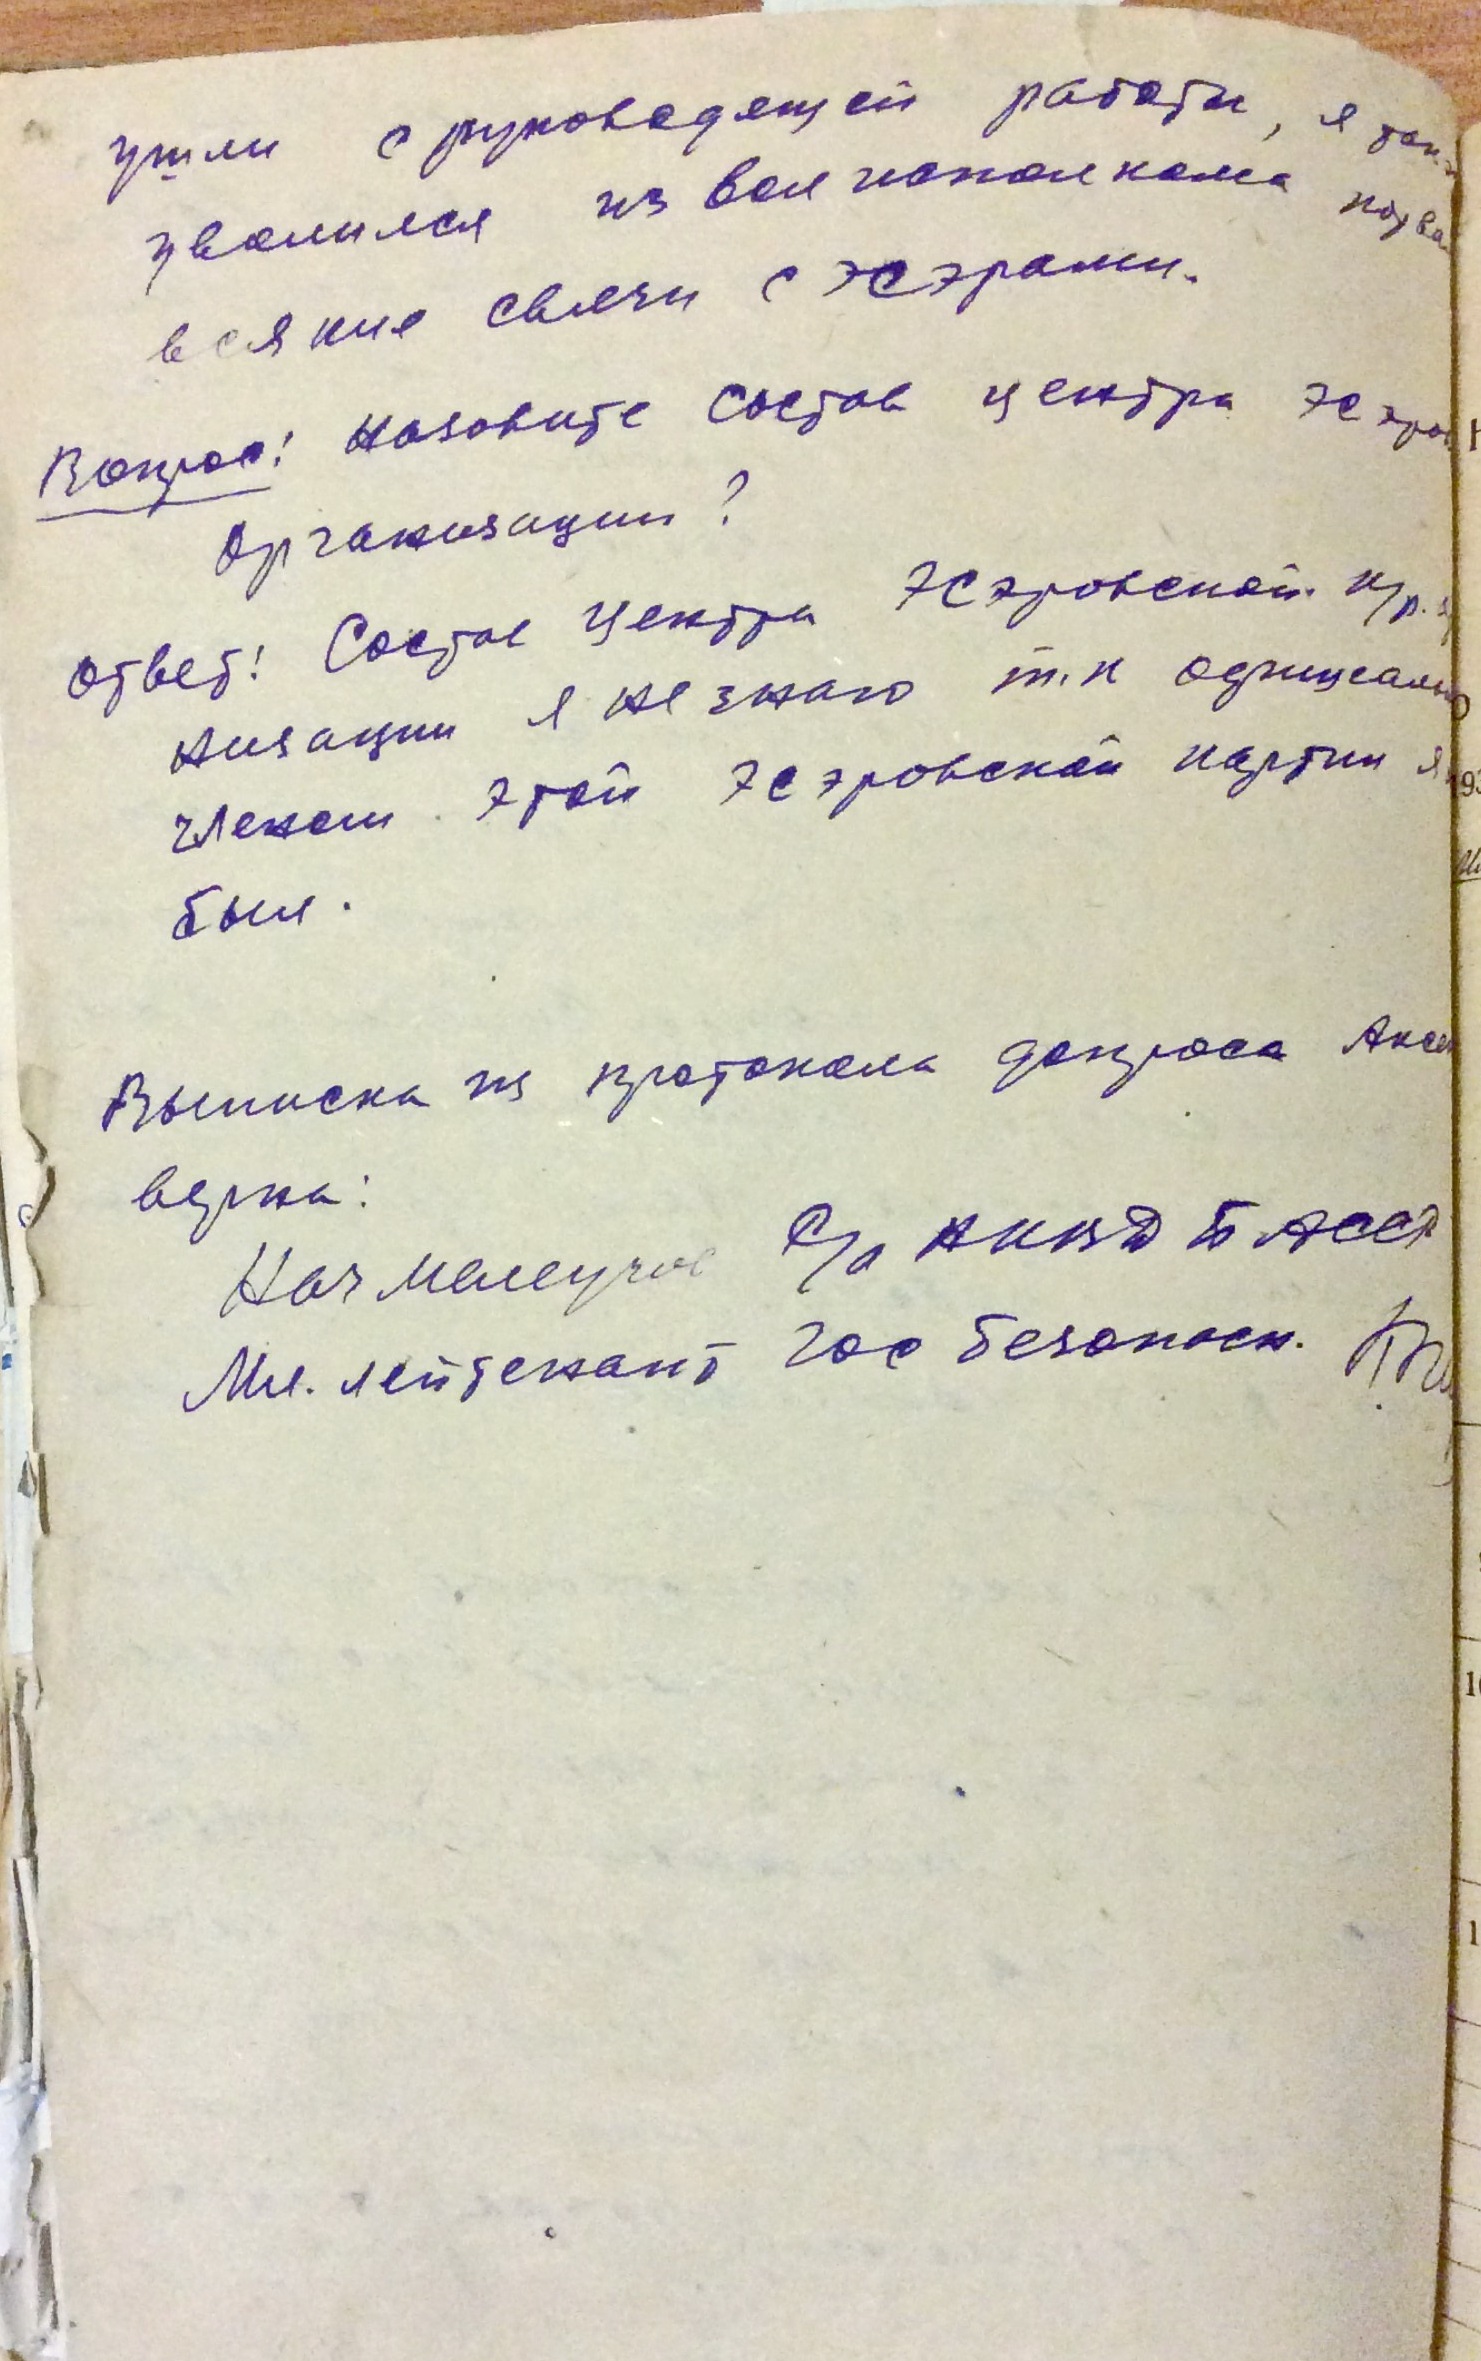 ушли с руководящей работы, я так-
уволился из волисполкома порва
всякие связи с эсэрами.
Вопрос: Назовите состав центра эсэров
организации?
Ответ: Состав центра эсэровской к/р.
низации я не знаю т.к официально
членом этой эсэровской партии я
был.
Выписка из протокола допроса Аксе
верна:
Нач С/о НКВД БАССР
Мл. лейтенант Гос безопасн.